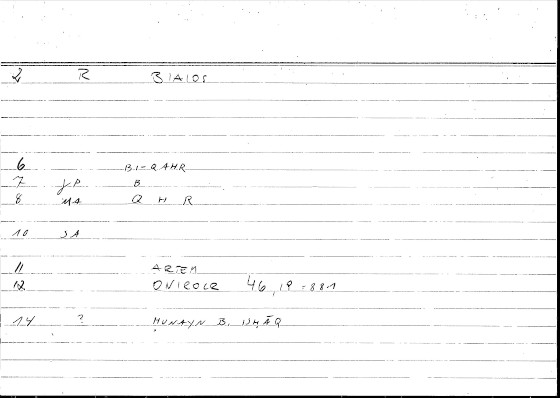 2 R BIAIOS
6 BI-QAHR
7 JP B
8 MA Q H R
10 SA
11 ARTEM
12 ONIROCR 46,19-881
14 ? HUNAYN B. ISḤĀQ